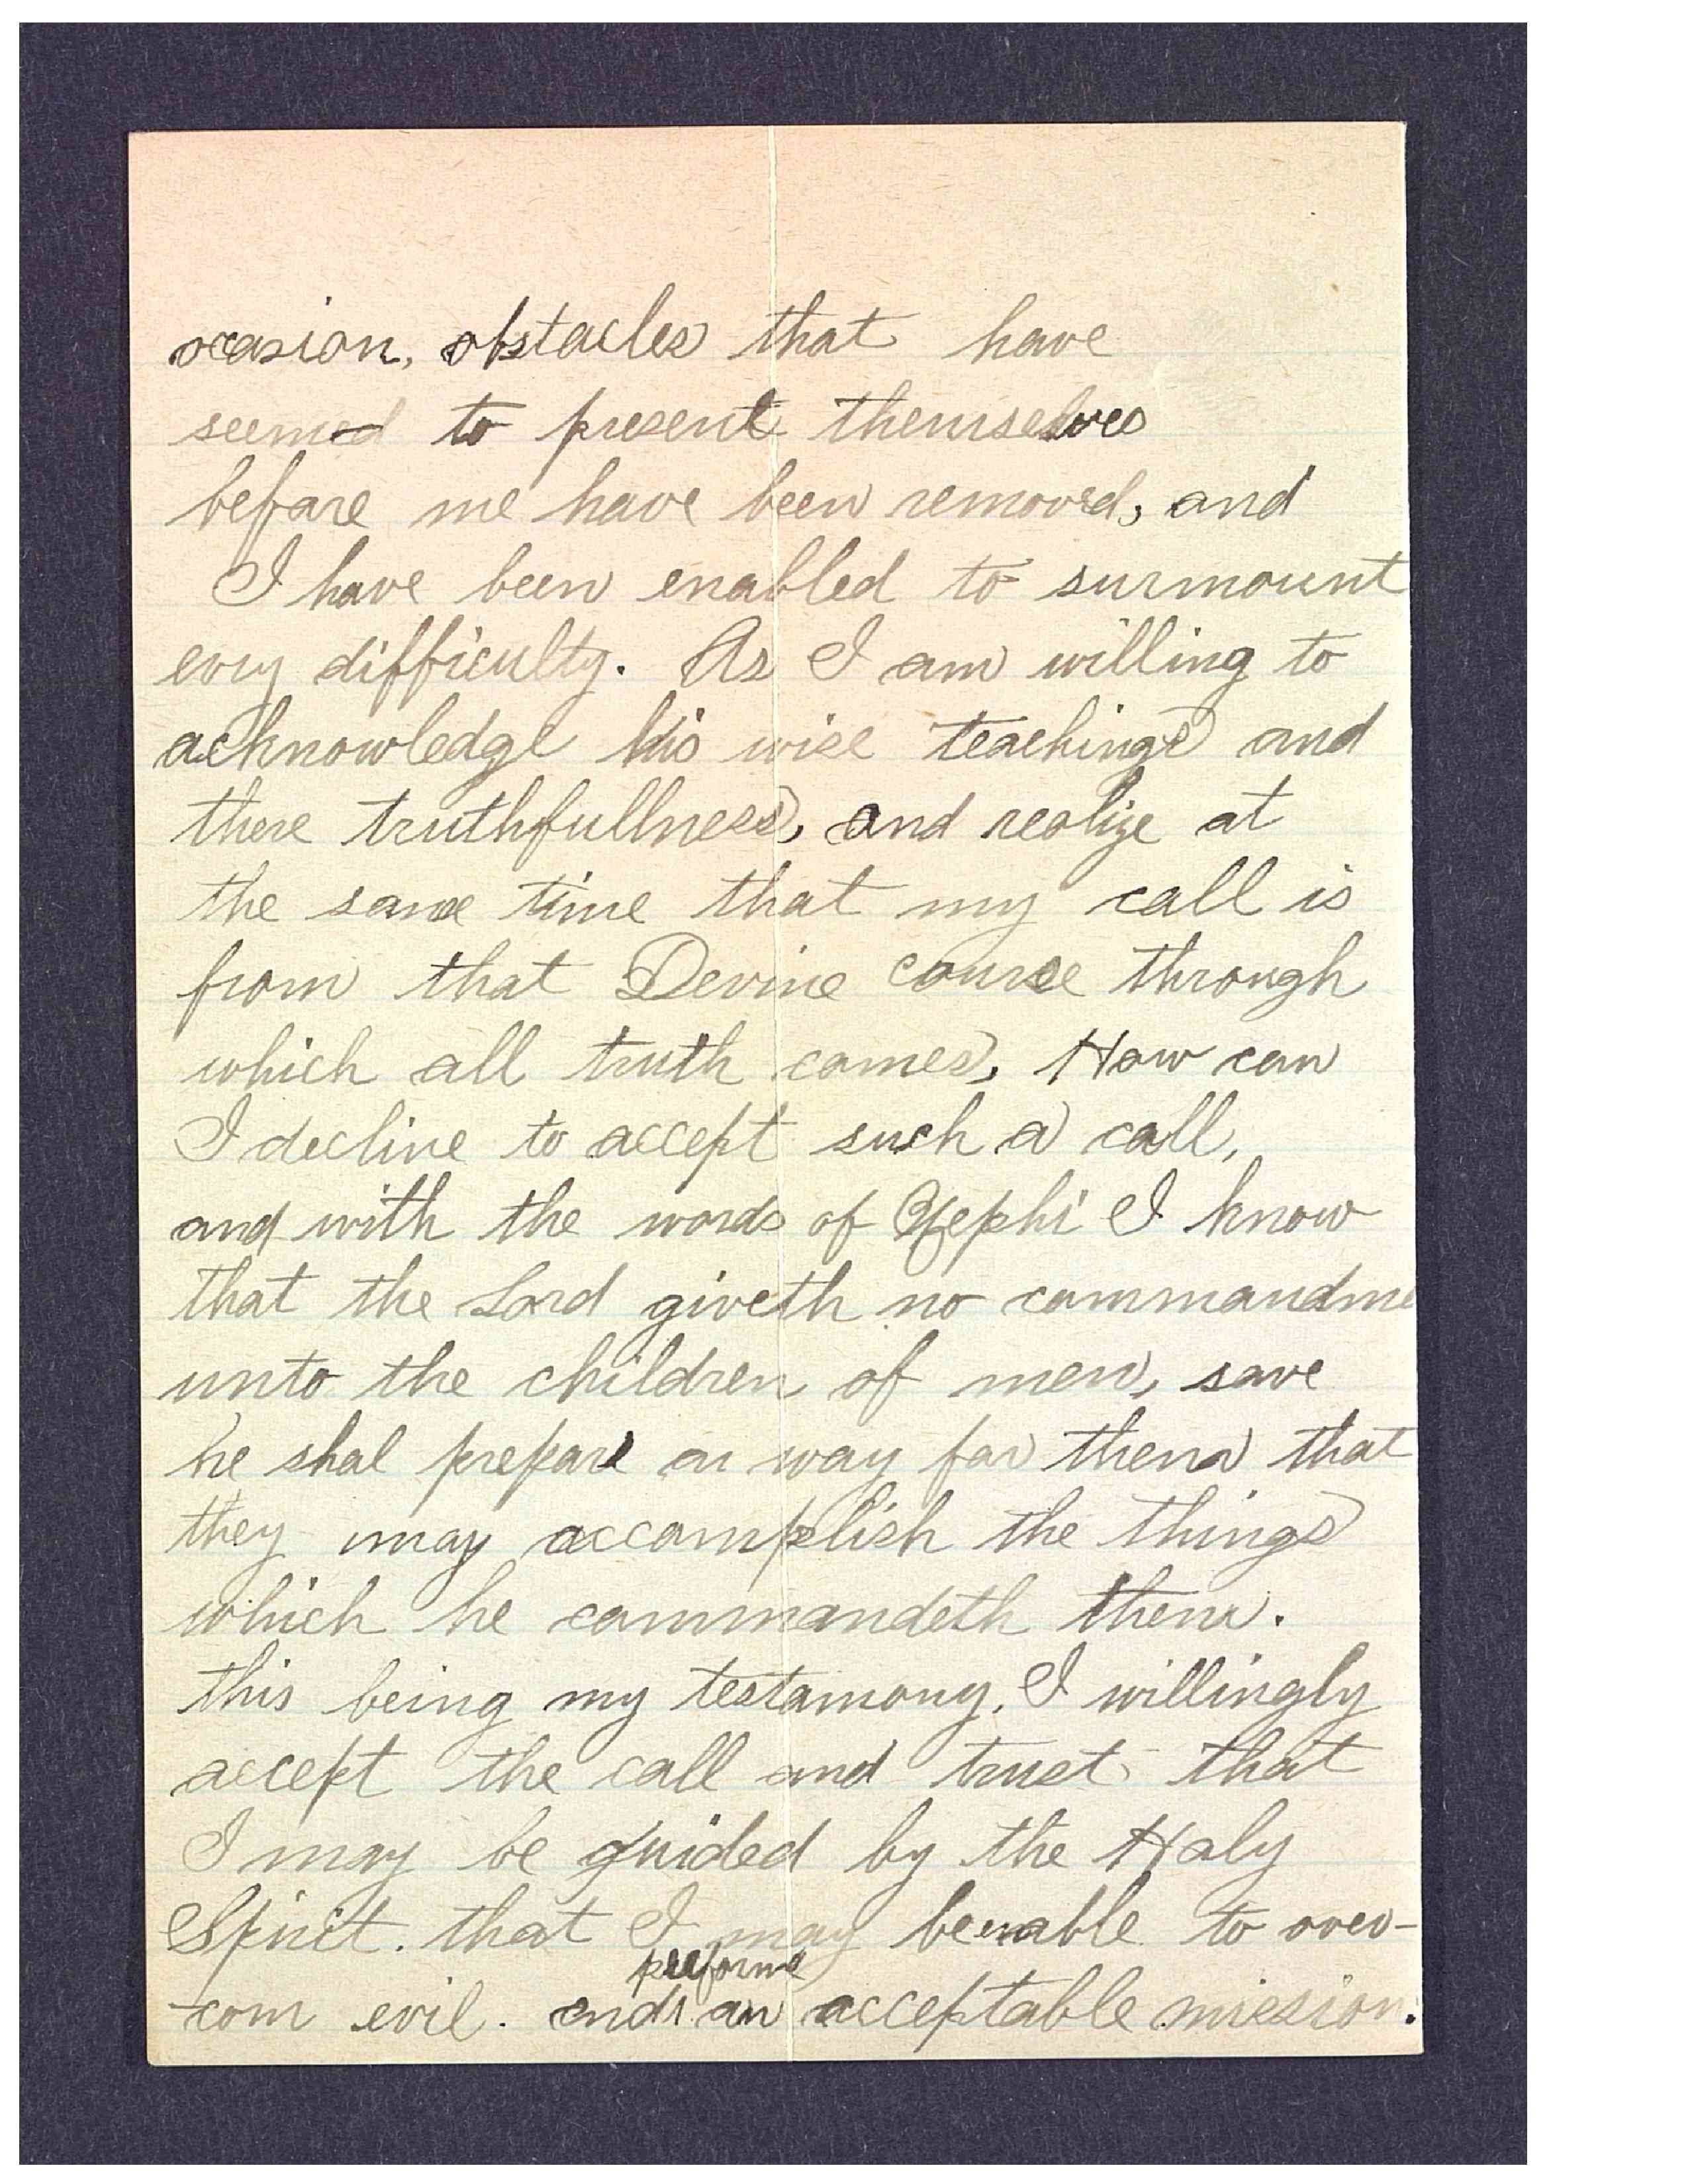 ocasion, obstacles that have
seemed to present themselves
before me have been removed, and
I have been enabled to surmount
evry difficulty. As I am willing to
acknowledge his wise teachings and
there truthfullness, and realize at
the same time that my call is
from that Devine cource through
which all truth comes, How can
I decline to accept such a call,
and with the words of Nephi I know
that the Lord giveth no commandme
unto the children of men, save
he shal prepare a way for them that
they may accomplish the things
which he commandeth them.
this being my testamony, I willingly
accept the call and trust that
I may be guided by the Holy
Spirit. that I may be enable to over-
performe
com evil. and an acceptable mission.